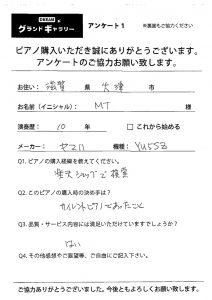 グランドギャラリー アンケート1 ※裏面もご協力ください
ピアノ購入いただき誠にありがとうございます。
アンケートのご協力お願い致します。
お住い： 滋賀 県 大津 市
お名前（イニシャル）： MT 様
演奏歴： 10 年 □ これから始める
メーカー： ヤマハ 機種： YU5SZ
Q1. ピアノの購入経緯を教えてください。
楽天ショップで検索
Q2. このピアノの購入時の決め手は？
サイレントピアノであったこと
Q3. 品質・サービス内容には満足いただけていますでしょうか？
はい
Q4. その他感想やご要望等、ご自由にご記入下さい。
ありがとうございました。今後ともよろしくお願い致します。